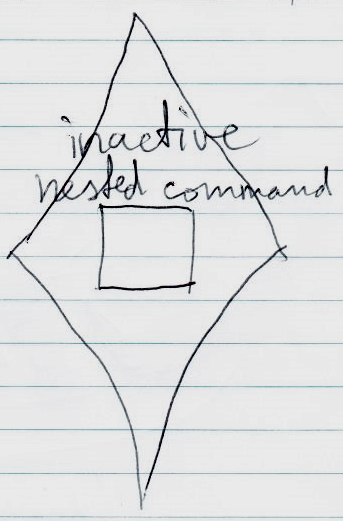 inactive
nested command